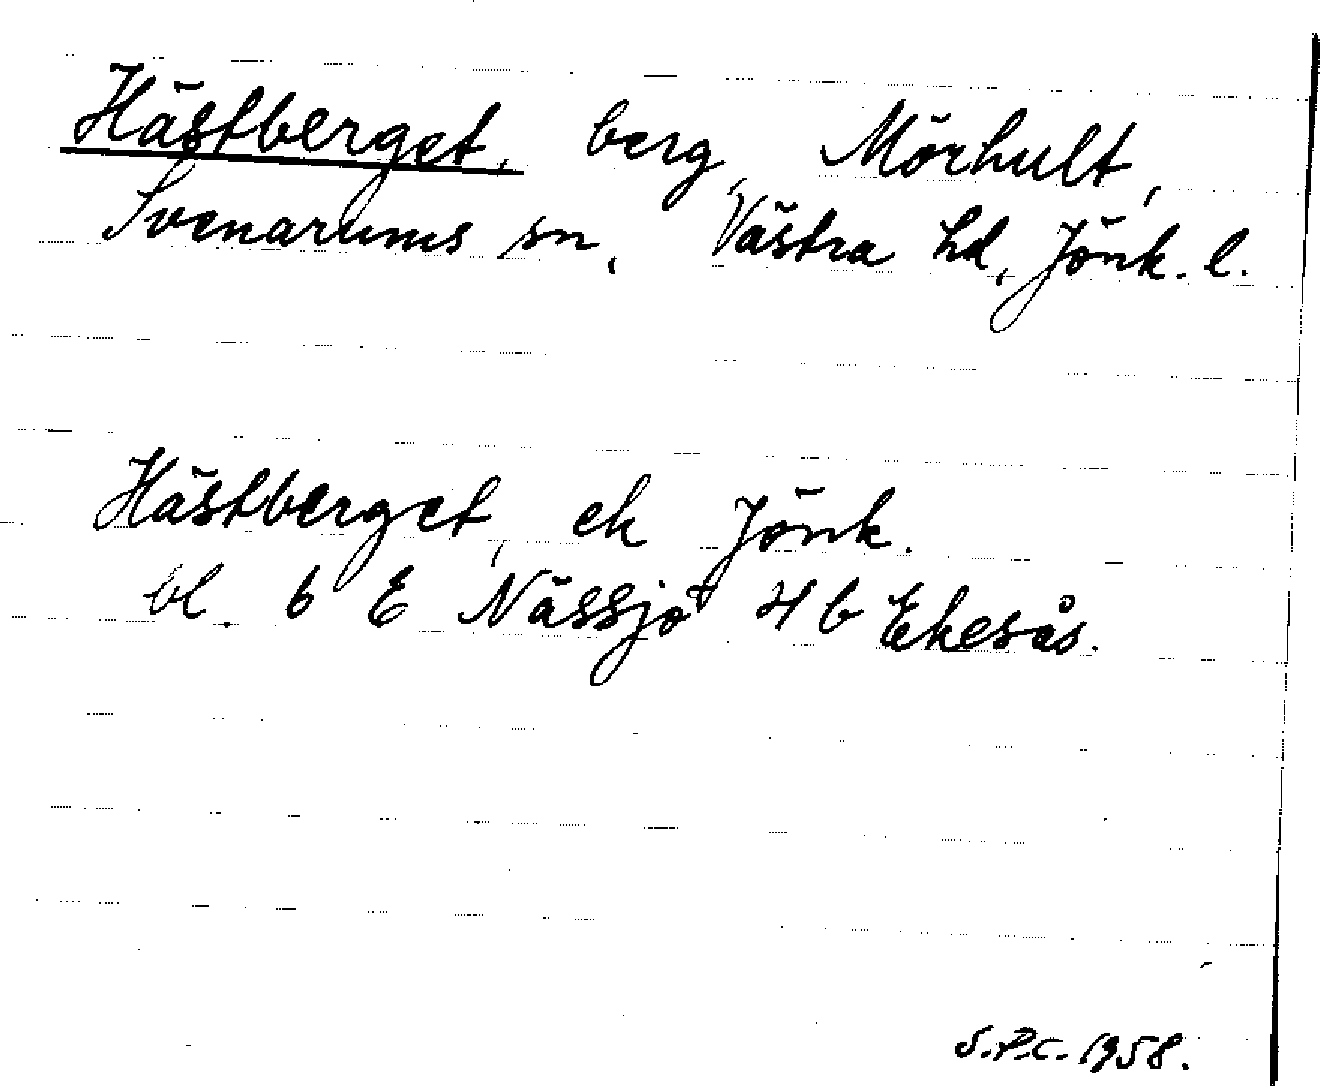 Hästberget, berg, Mörhult,
Svenarums sn, Västra hd, Jönk. l.
Hästberget, ek Jönk.
bl. 6 E Nässjö 4 b Ekesås.
S.P.C. 1958.